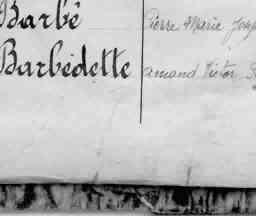 Barbé Pierre Marie Josep
Barbedette amand Victor